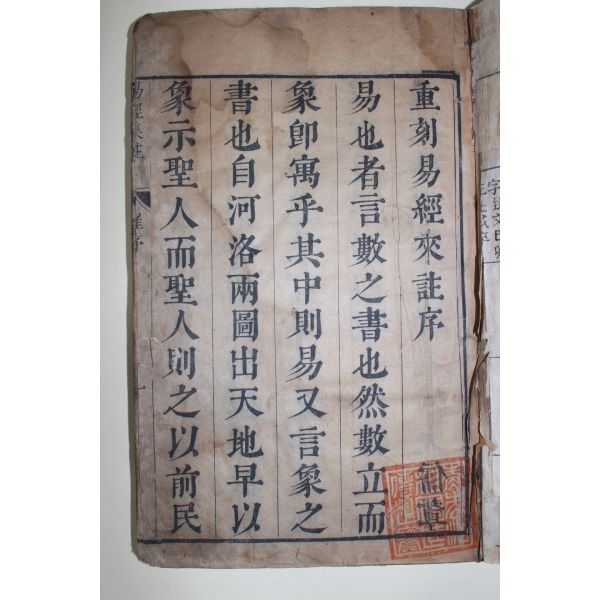 重刻易經來註序
易也者言數之書也然數立而
象卽寓乎其中則易又言象之
書也自河洛兩圖出天地早以
象示聖人而聖人則之以前民
易經集註